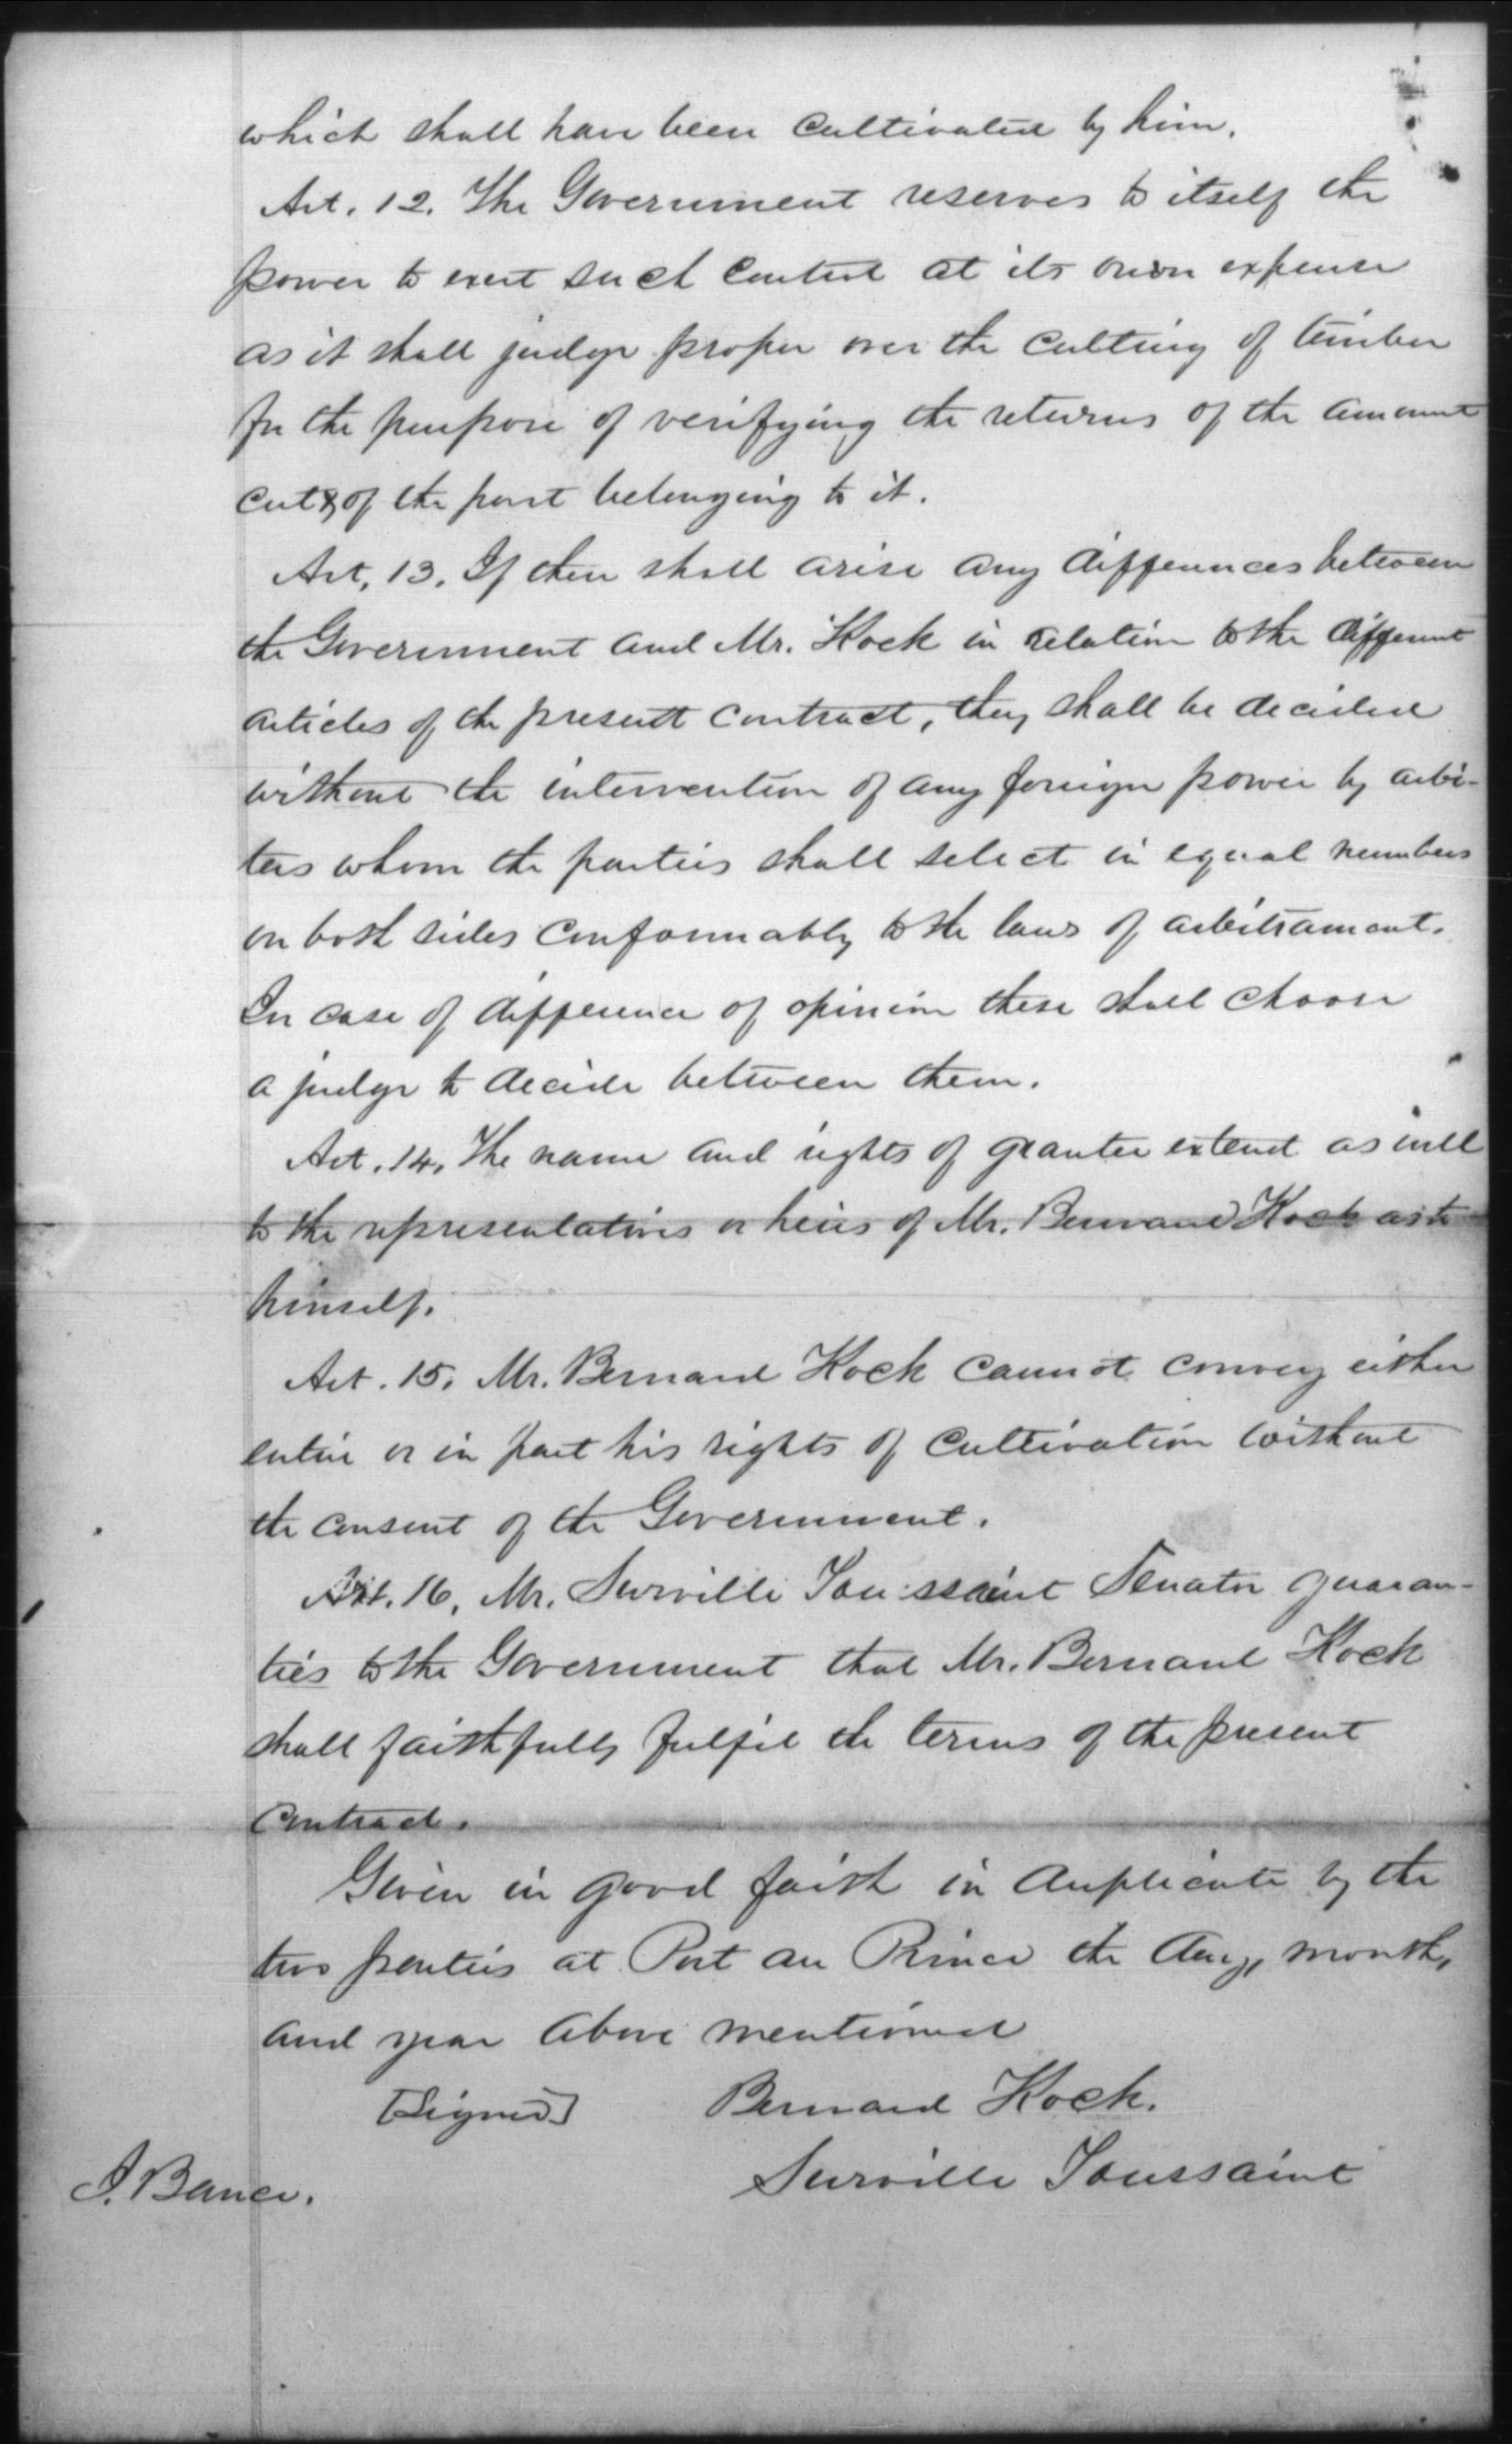 which shall have been cultivated by him.
Art. 12. The Government reserves to itself the
power to exert such control at its own expense
as it shall judge proper over the cutting of timber
for the purpose of verifying the returns of the amount
cut & of the part belonging to it.
Art. 13. If there shall arise any differences between
the Government and Mr. Kock in relation to the different
articles of the present contract, they shall be decided
without the intervention of any foreign power by arbi-
ters whom the parties shall select in equal numbers
on both sides conformably to the laws of arbitrament.
In case of difference of opinion these shall choose
a judge to decide between them.
Art. 14. The name and rights of grantee extend as well
to the representatives or heirs of Mr. Bernard Kock as to
himself.
Art. 15. Mr. Bernard Kock cannot convey either
entire or in part his rights of cultivation without
the consent of the Government.
Art. 16. Mr. Surville Toussaint Senator guaran-
ties to the Government that Mr. Bernard Kock
shall faithfully fulfil the terms of the present
contract.
Given in good faith in duplicate by the
two parties at Port au Prince the day, month,
and year above mentioned
[Signed] Bernard Kock.
Surville Toussaint
J. Bance.